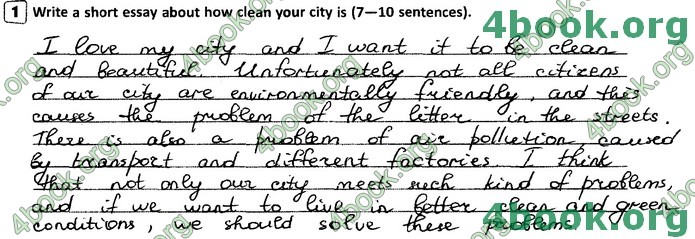 1 Write a short essay about how clean your city is (7—10 sentences).
4book.org
I love my city and I want it to be clean
and beautiful. Unfortunately not all citizens
of our city are environmentally friendly, and this
causes the problem of the litter in the streets.
There is also a problem of air pollution caused
by transport and different factories. I think
that not only our city meets such kind of problems,
and if we want to live in better clean and green
conditions, we should solve these problems.
4book.org